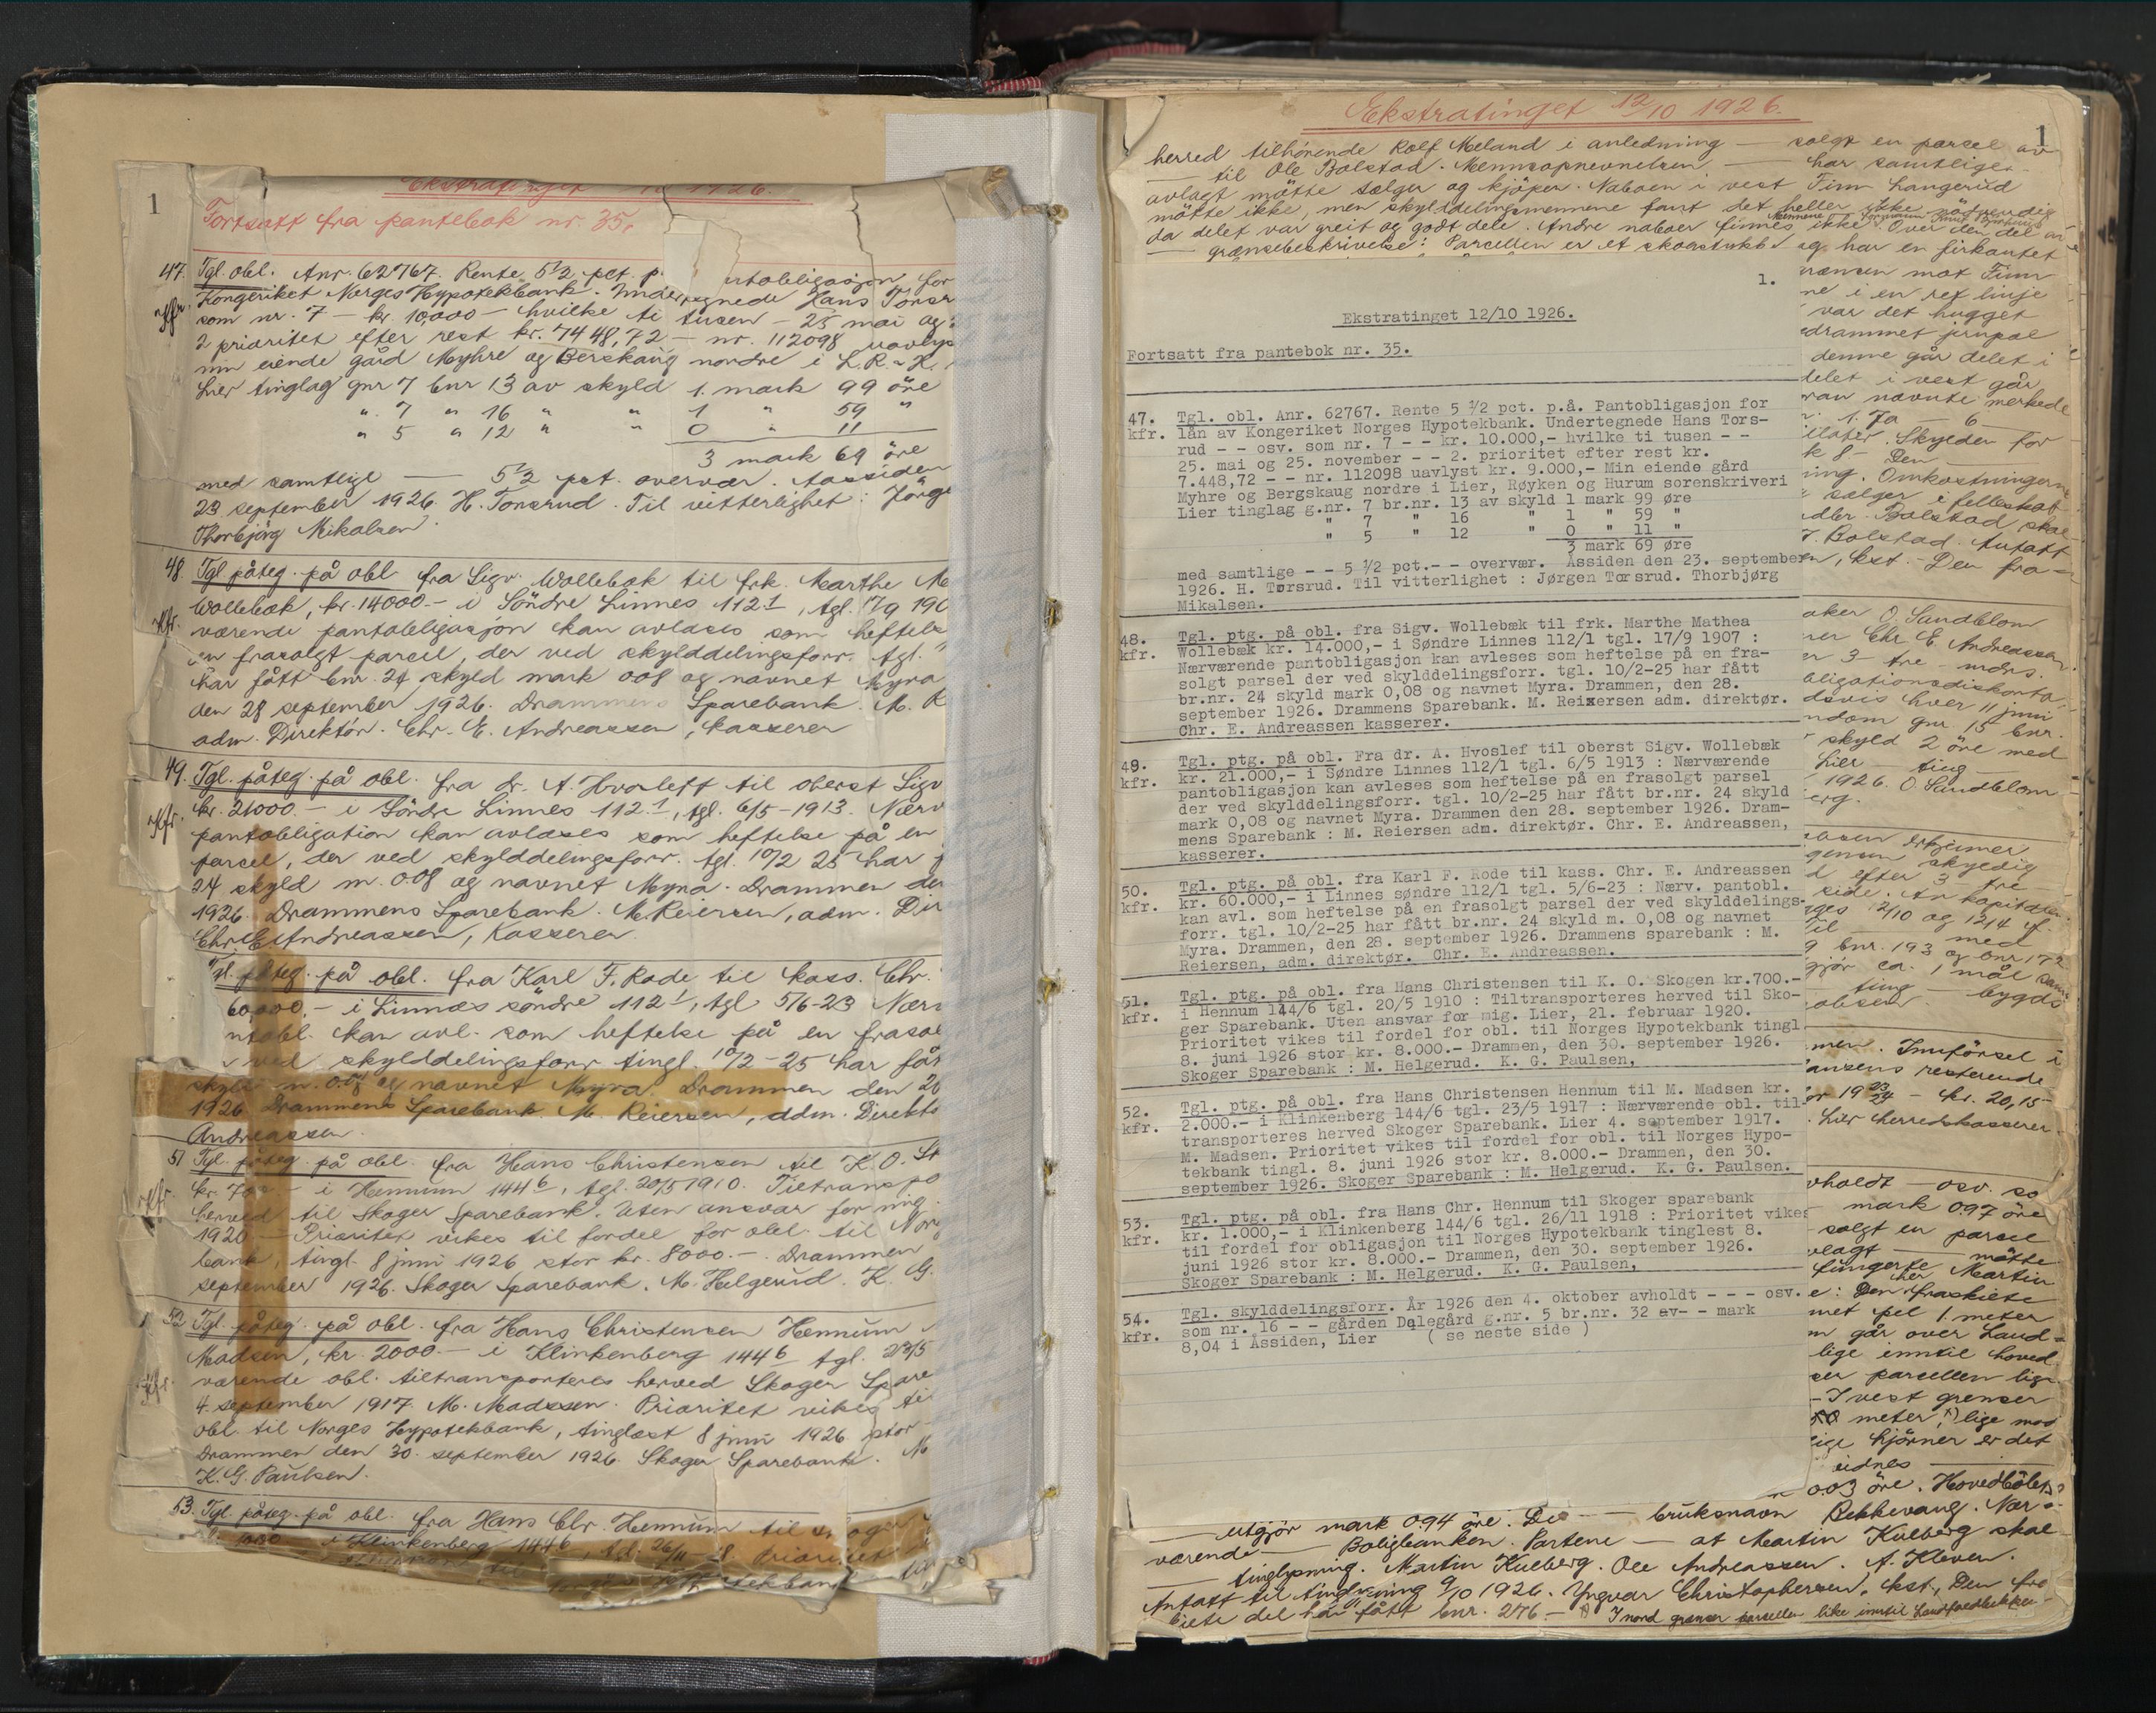 Ekstratinget 1926.
1
Fortsatt fra pantebok nr. 35.
47. Tgl. obl. Anr. 62767. Rente 5½ pct. p. antobligasjon for
kfr. Kongeriket Norges Hypotekbank. Undertegnede Hans Torsr
som nr. 7 — kr. 10,000 — hvilke ti tusen — 25 mai og
2 prioritet efter rest kr. 7448,72 — nr. 112098 uavlys
min eiende gård Myhre og Berskaug nordre i L. R. H.
Lier tinglag gnr 7 bnr 13 av skyld 1 mark 99 öre
" 7 " 16 " " 1 " 59 "
" 5 " 12 " " 0 " 11
3 mark 69 öre
med samtlige — 5½ pct. overvær. Aassiden
23 september 1926. H. Torsrud. Til vitterlighet: Jörge
Thorbjörg Mikalsen.
48. Tgl påteg. på obl fra Sigv. Wollebæk til frk. Marthe M
kfr. Wollebæk, kr. 14000.- i Söndre Linnes 112 1, tgl. 17/9 190
værende pantobligasjon kan avlæses som heftels
en frasolgt parsel, der ved skylddelingsforr. tgl.
har fått bnr. 24 skyld mark 008 og navnet Myra
den 28 september 1926. Drammens Sparebank. M. R
adm. Direktör. Chr. E. Andreassen, kasserer
49. Tgl. påteg. på obl. fra dr. A. Hvosleff til oberst Sigv
kfr. kr. 21000.- i Söndre Linnes 112 1, tgl. 6/5-1913. Nærv
pantobligation kan avlæses som heftelse på en
parsel, der ved skylddelingsforr. tgl. 10/2 25 har
24 skyld m. 0.08 og navnet Myra. Drammen den
1926. Drammens Sparebank. M. Reiersen, adm. Dir
Chr. E. Andreassen, Kasserer.
Tgl. påteg. på obl. fra Karl F. Rode til kass. Chr.
60,000.- i Linnes söndre 112 1, tgl 5/6-23 Nærv
ntobl. kan avl. som heftelse på en frasol
ved skylddelingsforr tingl. 10/2-25 har fåt
skyld m. 0.08 og navnet Myra. Drammen den 28
1926 Drammens Sparebank M. Reiersen, adm. Direktö
Andreassen.
51 Tgl. påteg. på obl. fra Hans Christensen til K. O. Sk
kfr. kr. 700.- i Hennum 144 6, tgl. 20/5 1910. Tiltranspo
herved til Skoger Sparebank. Uten ansvar for mig.
1920 — Prioritet vikes til fordel for obl. til Nor
bank, tingl. 8 juni 1926 stor kr. 8000.-. Drammen
september 1926. Skoger Sparebank. M. Helgerud. K. G.
52 Tgl. påteg. på obl. fra Hans Christensen Hennum
Madsen, kr. 2000.- i Klinkenberg 144 6 tgl. 23/5
kfr. værende obl. tiltransporteres herved Skoger Spare
4 september 1917. M. Madssen. Prioritet vikes til
obl. til Norges Hypotekbank, tinglæst 8 juni 1926 stor
Drammen den 30. september 1926. Skoger Sparebank. M
K. G. Paulsen.
53. Tgl. påteg. på obl. fra Hans Chr. Hennum til Skoger
1000 i Klinkenberg 144 6, tgl. 26/11 18 Prioritet
Ekstratinget 12/10 1926.
1
herred tilhörende Rolf Meland i anledning — solgt en parcel av
— til Ole Bolstad. Mennsopnevnelsen — har samtlige
avlagt mötte sælger og kjöper. Naboen i vest Finn Langerud
mötte ikke, men skylddelingsmennene fant det heller ikke nödvendig
da delet var greit og godt dele. Andre naboer finnes ikke. Over den del av
— grænsebeskrivelse: Parcellen er et skogstykke og har en firkantet
rænsen mot Finn
ne i en ret linje
var det hugget
edrammet jernpæl
denne går delet i
delet i vest går
ran navnte merkede
1. Ja — 6 —
Skylden for
k 8 - Den
ning. Omkostningerne
sælger i felleskab
Bolstad skal
Bolstad. Antatt
n, kst. - Den fra
1.
Ekstratinget 12/10 1926.
Fortsatt fra pantebok nr. 35.
47. Tgl. obl. Anr. 62767. Rente 5 1/2 pct. p.å. Pantobligasjon for
kfr. lån av Kongeriket Norges Hypotekbank. Undertegnede Hans Tors-
rud - - osv. som nr. 7 - - kr. 10.000,- hvilke ti tusen - -
25. mai og 25. november - - 2. prioritet efter rest kr.
7.448,72 - - nr. 112098 uavlyst kr. 9.000,- Min eiende gård
Myhre og Bergskaug nordre i Lier, Røyken og Hurum sorenskriveri
Lier tinglag g.nr. 7 br.nr. 13 av skyld 1 mark 99 øre
" 7 " 16 " 1 " 59 "
" 5 " 12 " 0 " 11 "
3 mark 69 øre
med samtlige - - 5 1/2 pct.- - overvær. Åssiden den 23. september
1926. H. Torsrud. Til vitterlighet : Jørgen Torsrud. Thorbjørg
Mikalsen.
48. Tgl. ptg. på obl. fra Sigv. Wollebæk til frk. Marthe Mathea
kfr. Wollebæk kr. 14.000,- i Søndre Linnes 112/1 tgl. 17/9 1907 :
Nærværende pantobligasjon kan avleses som heftelse på en fra-
solgt parsel der ved skylddelingsforr. tgl. 10/2-25 har fått
br.nr. 24 skyld mark 0,08 og navnet Myra. Drammen, den 28.
september 1926. Drammens Sparebank. M. Reiersen adm. direktør.
Chr. E. Andreassen kasserer.
49. Tgl. ptg. på obl. Fra dr. A. Hvoslef til oberst Sigv. Wollebæk
kfr. kr. 21.000,- i Søndre Linnes 112/1 tgl. 6/5 1913 : Nærværende
pantobligasjon kan avleses som heftelse på en frasolgt parsel
der ved skylddelingsforr. tgl. 10/2-25 har fått br.nr. 24 skyld
mark 0,08 og navnet Myra. Drammen den 28. september 1926. Dram-
mens Sparebank : M. Reiersen adm. direktør. Chr. E. Andreassen,
kasserer.
50. Tgl. ptg. på obl. fra Karl F. Rode til kass. Chr. E. Andreassen
kfr. kr. 60.000,- i Linnes søndre 112/1 tgl. 5/6-23 : Nærv. pantobl.
kan avl. som heftelse på en frasolgt parsel der ved skylddelings-
forr. tgl. 10/2-25 har fått br.nr. 24 skyld m. 0,08 og navnet
Myra. Drammen, den 28. september 1926. Drammens sparebank : M.
Reiersen, adm. direktør. Chr. E. Andreassen.
51. Tgl. ptg. på obl. fra Hans Christensen til K. O. Skogen kr.700.-
kfr. i Hennum 144/6 tgl. 20/5 1910 : Tiltransporteres herved til Sko-
ger Sparebank. Uten ansvar for mig. Lier, 21. februar 1920.
Prioritet vikes til fordel for obl. til Norges Hypotekbank tingl.
8. juni 1926 stor kr. 8.000.- Drammen, den 30. september 1926.
Skoger Sparebank : M. Helgerud. K. G. Paulsen,
52. Tgl. ptg. på obl. fra Hans Christensen Hennum til M. Madsen kr.
kfr. 2.000.- i Klinkenberg 144/6 tgl. 23/5 1917 : Nærværende obl. til-
transporteres herved Skoger Sparebank. Lier 4. september 1917.
M. Madsen. Prioritet vikes til fordel for obl. til Norges Hypo-
tekbank tingl. 8. juni 1926 stor kr. 8.000.- Drammen, den 30.
september 1926. Skoger Sparebank : M. Helgerud. K. G. Paulsen.
53. Tgl. ptg. på obl. fra Hans Chr. Hennum til Skoger sparebank
kfr. kr. 1.000,- i Klinkenberg 144/6 tgl. 26/11 1918 : Prioritet vikes
til fordel for obligasjon til Norges Hypotekbank tinglest 8.
juni 1926 stor kr. 8.000.- Drammen, den 30. september 1926.
Skoger Sparebank : M. Helgerud. K. G. Paulsen,
54. Tgl. skylddelingsforr. År 1926 den 4. oktober avholdt - - - osv.
kfr. som nr. 16 - - gården Dalegård g.nr. 5 br.nr. 32 av- - mark
8,04 i Åssiden, Lier ( se neste side )
aker O. Sandblom
ner Chr. E. Andreassen
er 3 - tre - mdrs.
bligationsdiskonto
dsvis hver 11 juni
ndom gnr 15 bnr.
skyld 2 öre med
Lier — ting
1926. O. Sandblom
erg.
skyldig
d efter 3 tre
side. An kapitalen
12/10 og 12/4
Til — med
9 bnr. 193 og bnr 172
gjör ca. 1 mål
ting — bygds
obsen.
men. Innförsel i
ansens resterende
or 19 23/24 - kr. 20,15
Lier herredskasserer.
vholdt — osv. so
mark 0.97 öre
solgt en parsel
vlagt — mötte
fungerte Martin
e: Den fraskilte
met pel 1 meter
m går over Land
lige inntil hoved
ser parcellen lige
- I vest grenser
50 meter, lige mod
lige hjörner er det
eidnes
0.03 öre. Hovedbölets
— utgjör mark 0.94 öre. De — bruksnavn Bekkevang. Nær-
værende — Boligbanken. Partene — at Martin Kulberg skal
— tinglysning. Martin Kulberg. Ole Andreassen. A. Kleven.
Antatt til tinglysning 9/10 1926. Yngvar Christophersen, kst., Den fra
skilte del har fått bnr. 276 — I nord grenser parsellen like inntil Landfaldbekken